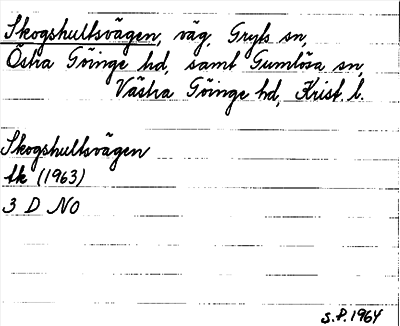 Skogshultsvägen, väg, Gryts sn,
Östra Göinge hd, samt Gumlösa sn,
Västra Göinge hd, Krist. l.
Skogshultsvägen
tk (1963)
3 D NO
S.P. 1964